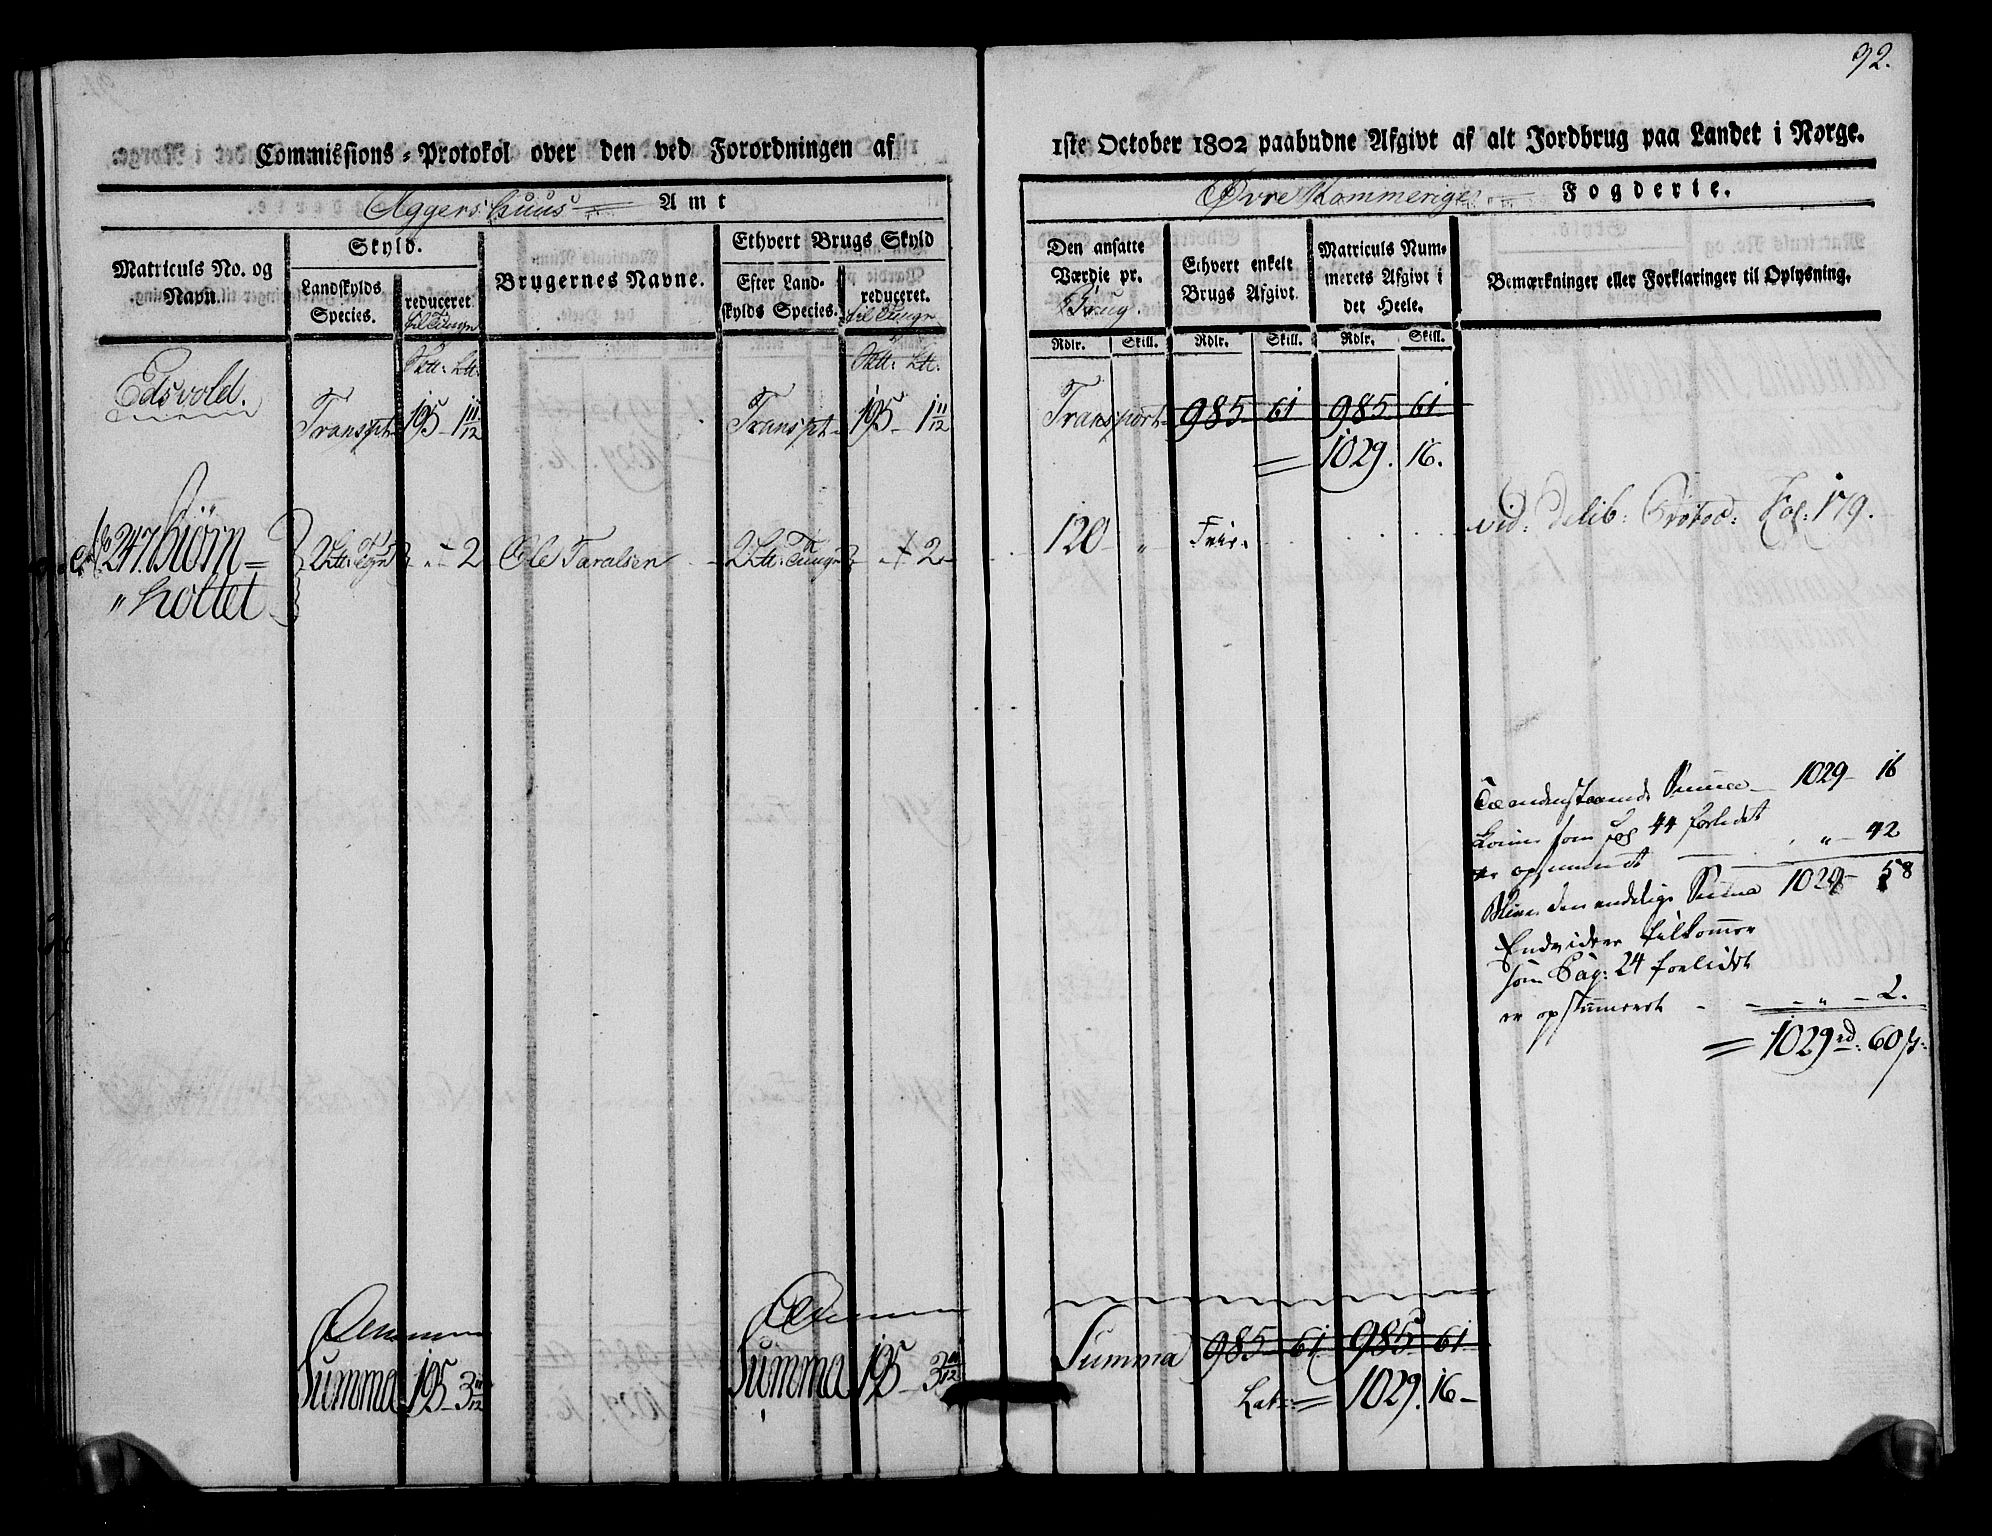 92.
Commissions-Protokol over den ved Forordningen af
1ste October 1802 paabudne Afgivt af alt Jordbrug paa Landet i Norge.
Aggershuus Amt
Øvre Rommerige Fogderie.
Matriculs No. og Navn.
Skyld.
Landskylds Species.
reduceret til Tunge
Brugernes Navne.
Ethvert Brugs Skyld
Efter Landskylds Species.
reduceret. til Tunge
Den ansatte Værdie pr. Brug
Ethvert enkelt Brugs Afgivt.
Matriculs Nummerets Afgivt i det Heele.
Bemærkninger eller Forklaringer til Oplysning.
Rdlr. Skill. Rdlr. Skill. Rdlr. Skill.
Edsvold.
Transpt 195 - 1 11/12 Transpt 195 - 1 11/12 Transport 985 61 985 61
= 1029. 16.
No 247. Biørn=
"holtet
2 Ltt: Tge " - 2 Ole Taralsen 2 Ltt: Tunge " - 2 120 - " - Frie.
vid: Delib: Protoc: Fol: 179.
Summa 1029 - 16
som pag 44 forledet
" - 42
Bliver den endelige Summa 1029 - 58
Endvidere tilkommer
som Pag: 24 forledet
er opsummeret - - " - 2.
= 1029 rd: 60 s:
Summa 195 - 3 11/12 Summa 195 - 3 11/12 Summa 985 61 985 61
Lat: = 1029. 16 -